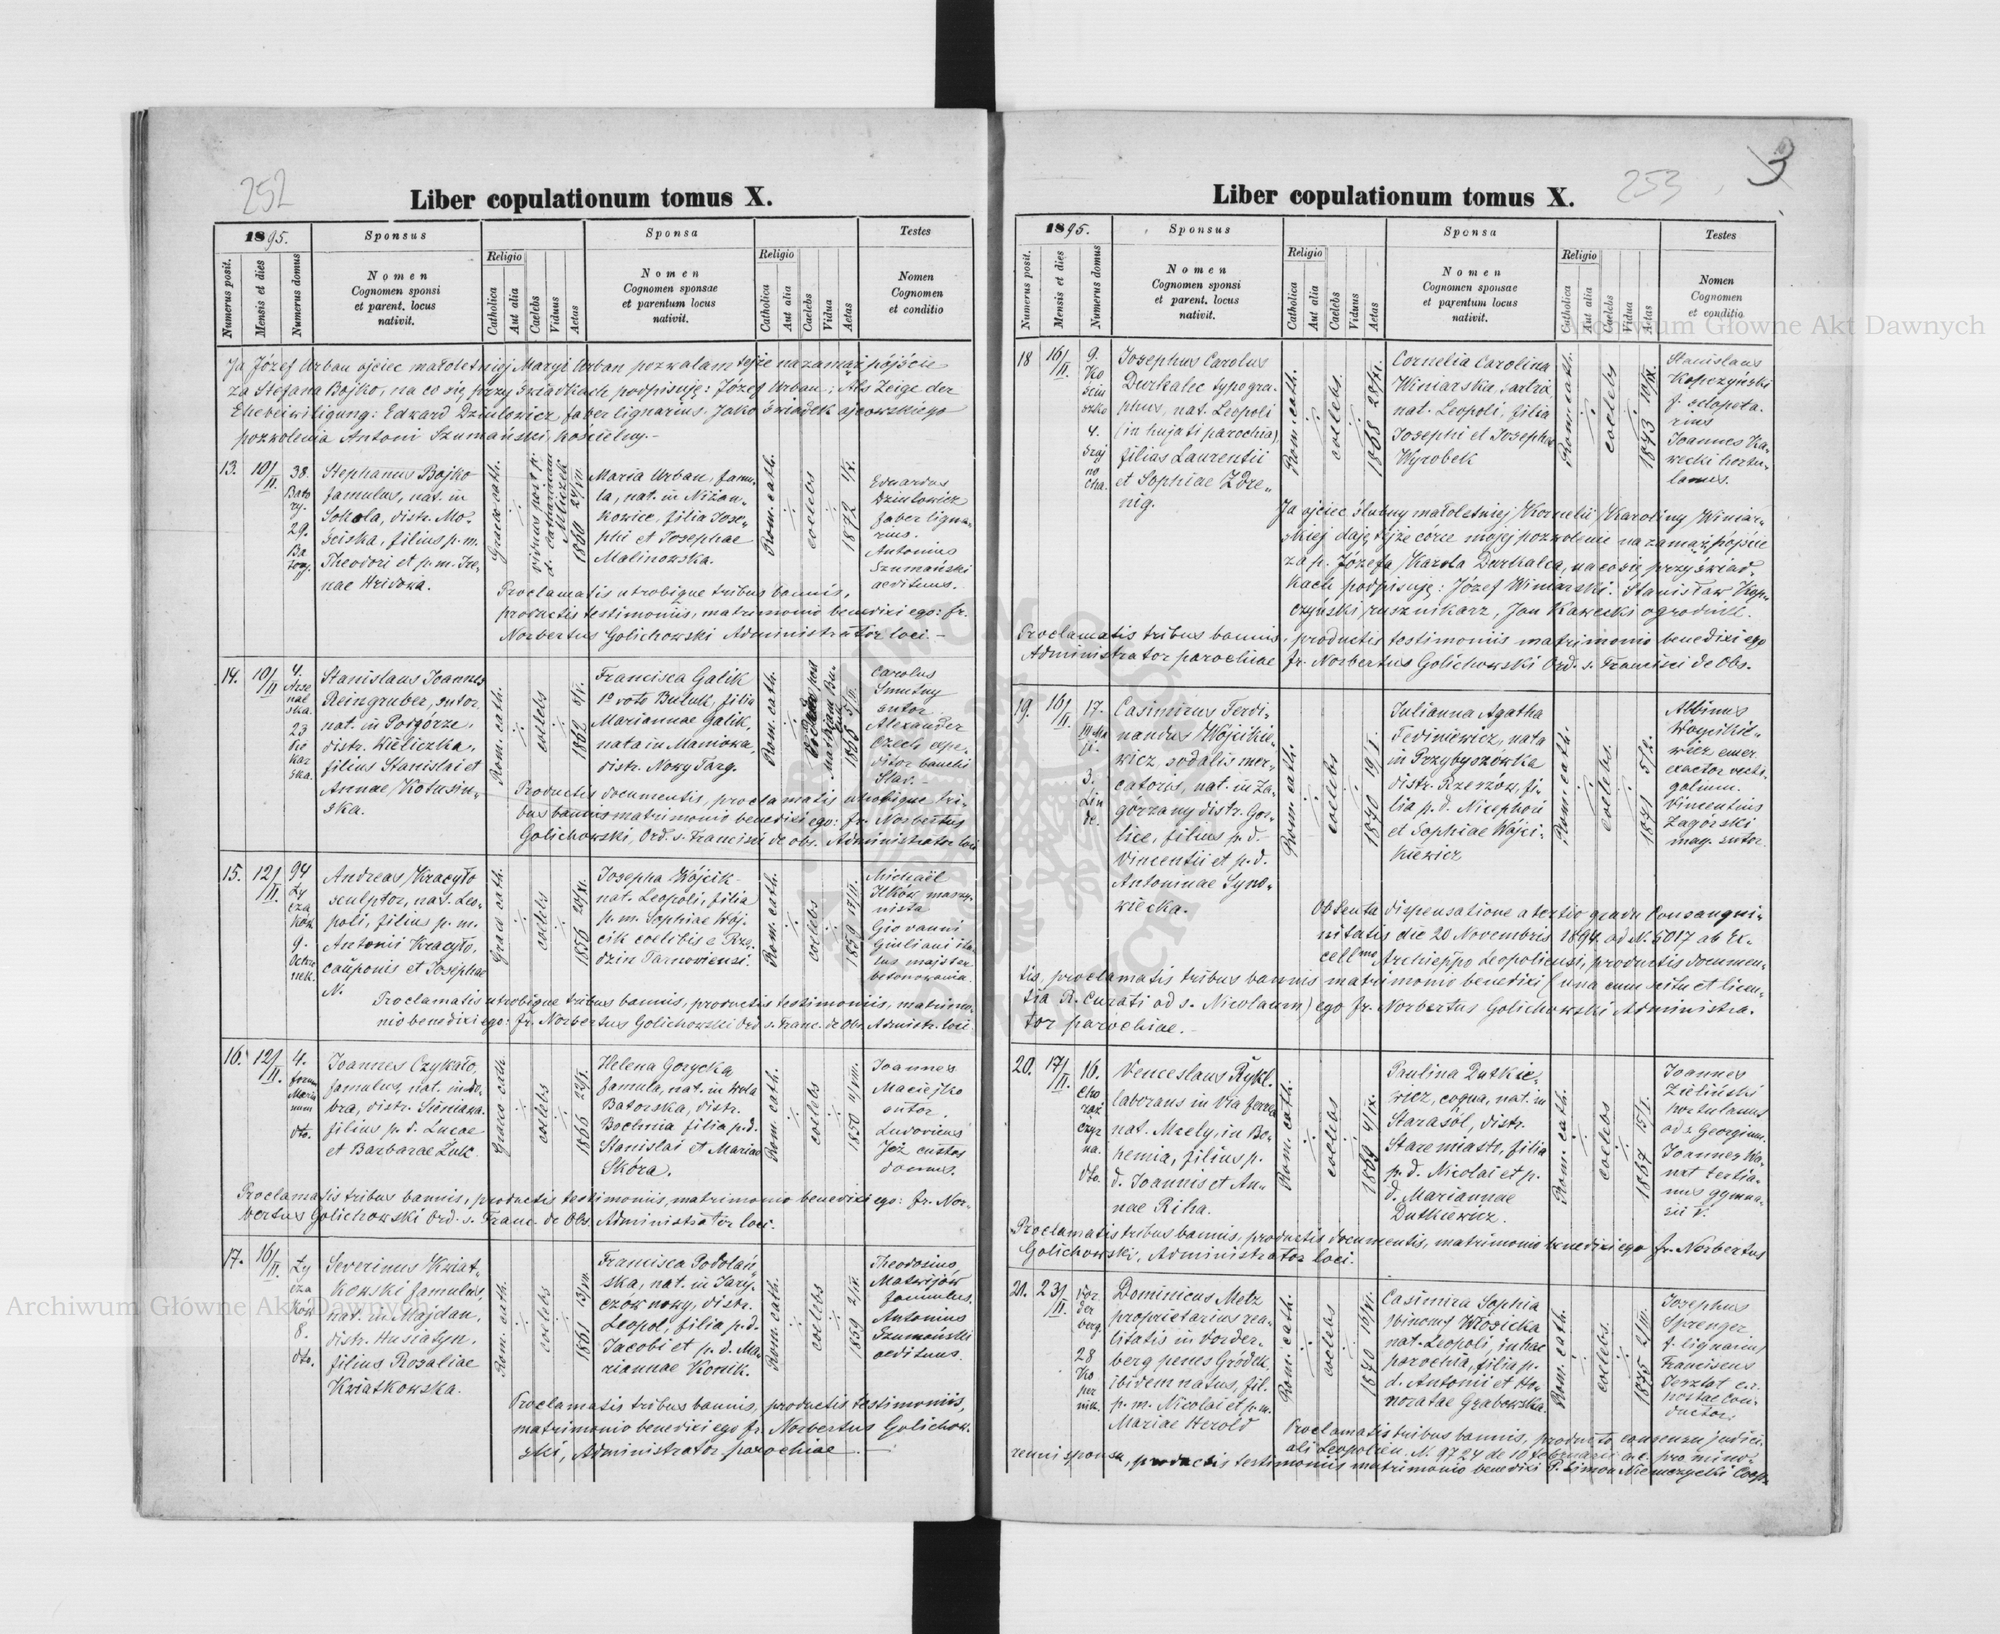 252
Liber copulationum tomus X.
1895.
Sponsus
Sponsa
Testes
Numerus posit.
Mensis et dies
Numerus domus
Nomen
Cognomen sponsi
et parent. locus
nativit.
Religio
Catholica
Aut alia
Caelebs
Viduus
Aetas
Nomen
Cognomen sponsae
et parentum locus
nativit.
Religio
Catholica
Aut alia
Caelebs
Vidua
Aetas
Nomen
Cognomen
et conditio
Ja Józef Urban ojciec małoletniej Maryi Urban pozwalam tejże na zamąż pójście
za Stefana Bojko, na co się przy świadkach podpisuję: Józef Urban. Als Zeige der
Ehebewiligung: Edward Dziulowicz faber lignarius. Jako świadek ojcowskiego
pozwolenia Antoni Szumański, kościelny.-
13.
10/II.
38.
Bato
ry.
29.
Stephanus Bojko
famulus, nat. in
Sokola, distr. Mo-
ściska, filius p. m.
Theodori et p. m. Ire-
nae Hridowa.
Graeco cath.
viduus post p.
d. Catharinam
1860
Maria Urban, famu-
la, nat. in Niżan-
kowice, filia Jose-
phi et Josephae
Malinowska.
Rom. cath.
coelebs
1872
Eduardus
Dziulowicz
faber ligna-
rius.
Antonius
Szumański
aedituus.
Proclamatis utrobique tribus bannis,
productis testimoniis, matrimonio benedixi ego: fr.
Norbertus Golichowski Administrator loci.-
14.
10/II
4.
Arse
nal
ska.
23
Pie
kar
ska.
Stanislaus Joannes
Reingruber, sutor
nat. in Podgórze,
distr. Wieliczka,
filius Stanislai et
Annae Kotusiń-
ska.
Rom. cath.
coelebs
1862
Francisca Galik
1º voto Butuk, filia
Mariannae Galik,
nata in Maniowa,
distr. Nowy Targ.
Rom. cath.
Carolus
Smutny
sutor
Alexander
Czech expe-
ditor
Productis documentis, proclamatis utrobique tri-
bus bannis matrimonio benedixi ego: fr. Norbertus
Golichowski, Ord. s. Francisci de obs. Administrator loci
15.
12/II.
94
Ły
cza
kow.
9.
Andreas Kracyło
sculptor, nat. Leo-
poli, filius p. m.
Antonii Kracyło,
cauponis et Josephae
N.
Graeco cath.
coelebs
1856
Josepha Wójcik
nat. Leopoli, filia
p. m. Sophiae Wój-
cik coelibis e Rzę-
dzin Tarnoviensi.
Rom. cath.
coelebs
1859
Michaël
Ilków maszy-
nista
Giovanni
Giuliani ita-
lus majster
betonowania.
Proclamatis utrobique tribus bannis, productis testimoniis, matrimo-
nio benedixi ego: fr. Norbertus Golichowski Ord. s. Franc. de Obs. Administr. loci.
16.
12/II.
4.
forum
Maria
num
dto.
Joannes Czykało,
famulus, nat. in Do-
bra, distr. Sieniawa
filius p. d. Lucae
et Barbarae Żuk.
Graeco cath.
coelebs
1866
Helena Gorycka,
famula, nat. in Wola
Batorska, distr.
Bochnia filia p. d.
Stanislai et Mariae
Skóra.
Rom. cath.
coelebs
1850
Joannes
Maciejko
sutor.
Ludovicus
Jeż custos
domus.
Proclamatis tribus bannis, productis testimoniis, matrimonio benedixi ego: fr. Nor-
bertus Golichowski Ord. s. Franc. de Obs. Administrator loci.
17.
16/II.
Ły
cza
kow
8.
dto.
Severinus Kwiat-
kowski famulus,
nat. in Majdan,
distr. Husiatyn,
filius Rosaliae
Kwiatkowska.
Rom. cath.
coelebs
1861
Francisca Podolań-
ska, nat. in Jary-
czów nowy, distr.
Leopol, filia p. d.
Jacobi et p. d. Ma-
riannae Konik.
Rom. cath.
coelebs
1859
Theodosius
Matwijów
famulus.
Antonius
Szumański
aedituus.
Proclamatis tribus bannis, productis testimoniis,
matrimonio benedixi ego fr. Norbertus Golichow-
ski, Administrator parochiae.
253
3
Liber copulationum tomus X.
1895.
Sponsus
Sponsa
Testes
Numerus posit.
Mensis et dies
Numerus domus
Nomen
Cognomen sponsi
et parent. locus
nativit.
Religio
Catholica
Aut alia
Caelebs
Viduus
Aetas
Nomen
Cognomen sponsae
et parentum locus
nativit.
Religio
Catholica
Aut alia
Caelebs
Vidua
Aetas
Nomen
Cognomen
et conditio
18
16/II.
9.
Ko
ściu
szko
4.
Szaj
no
cha.
Josephus Carolus
Durkalec typogra-
phus, nat. Leopoli
(in hujati parochia),
filius Laurentii
et Sophiae Zdre-
nig.
Rom. cath.
coelebs.
1868 28/XI.
Cornelia Carolina
Winiarska,
nat. Leopoli, filia
Josephi et Josephae
Wyrobek
Rom. cath.
coelebs
1873
Stanislaus
Kopczyński
f. sclopeta-
rius
Joannes Ka-
wecki hortu-
lanus.
Ja ojciec ślubny małoletniej Kornelii Karoliny Winiar-
skiej daję tejże córce mojej pozwolenie na zamąż pójście
za p. Józefa Karola Durkalca, na co się przy świad-
kach podpisuję: Józef Winiarski. Stanisław Kop-
czyński rusznikarz, Jan Kawecki ogrodnik.
Proclamatis tribus bannis, productis testimoniis matrimonio benedixi ego
Administrator parochiae fr. Norbertus Golichowski Ord. s. Francisci de Obs.
19.
16/II.
17.
3.
Lin
de.
Casimirus Ferdi-
nandus Wójcikie-
wicz, sodalis mer-
catoris, nat. in Za-
górzany distr. Gor-
lice, filius p. d.
Vincentii et p. d.
Antoninae Syno-
wiecka.
Rom. cath.
coelebs
1870 19/I.
Julianna Agatha
Fediniewicz, nata
in Przybyszówka
distr. Rzeszów, fi-
lia p. d. Nicephori
et Sophiae Wójci-
kiewicz
Rom. cath.
coelebs.
1871
Albinus
Wojcikie-
wicz emer.
exactor vecti-
galium.
Vincentius
Zagórski
mag. sutor.
Obtenta dispensatione a tertio gradu Consangui-
nitatis die 20 Novembris 1894 ad N. 6017 ab Ex-
cellmo Archieppo Leopoliensi, productis documen-
tis, proclamatis tribus bannis matrimonio benedixi (una cum scitu et licen-
tia R. Curati ad s. Nicolaum) ego fr. Norbertus Golichowski Administra-
tor parochiae.-
20.
17/II.
16.
Cho
rąż
czyz
na.
dto.
Venceslaus Rykl.
laborans in via ferrea
nat. Mzely, in Bo-
hemia, filius p.
d. Joannis et An-
nae Riha.
Rom. cath.
coelebs
1869 4/IX.
Paulina Dutkie-
wicz, coqua, nat. in
Starasól, distr.
Staremiasto, filia
p. d. Nicolai et p.
d. Mariannae
Dutkiewicz.
Rom. cath.
coelebs
1867 15/I.
Joannes
Zieliński
hortulanus
ad s. Georgium.
Joannes Wa-
nat tertia-
nus gymna-
sii V.
Proclamatis tribus bannis, productis documentis, matrimonio benedixi ego fr. Norbertus
Golichowski, Administrator loci.
21.
23/II.
Vor
der
berg.
28
Ko
per
nik.
Dominicus Metz
proprietarius rea-
litatis in Vorder-
berg penes Gródek,
ibidem natus, fil.
p. m. Nicolai et p. m.
Mariae Herold
Rom. cath.
coelebs
1870 16/VI.
Casimira Sophia
binomy Włosicka
nat. Leopoli, in hac
parochia, filia p.
d. Antonii et Ho-
noratae Grabowska.
Rom. cath.
coelebs.
1875
Josephus
Sprenger
f. lignarius
Franciscus
postae con-
ductor.
Proclamatis tribus bannis, producto consensu judici-
ali Leopolien. N. 9724 de 10 februarii a. c. pro mino-
renni sponsa, productis testimoniis matrimonio benedixi P. Simon Niemczycki Coop.
Archiwum Główne Akt Dawnych
Archiwum Główne Akt Dawnych